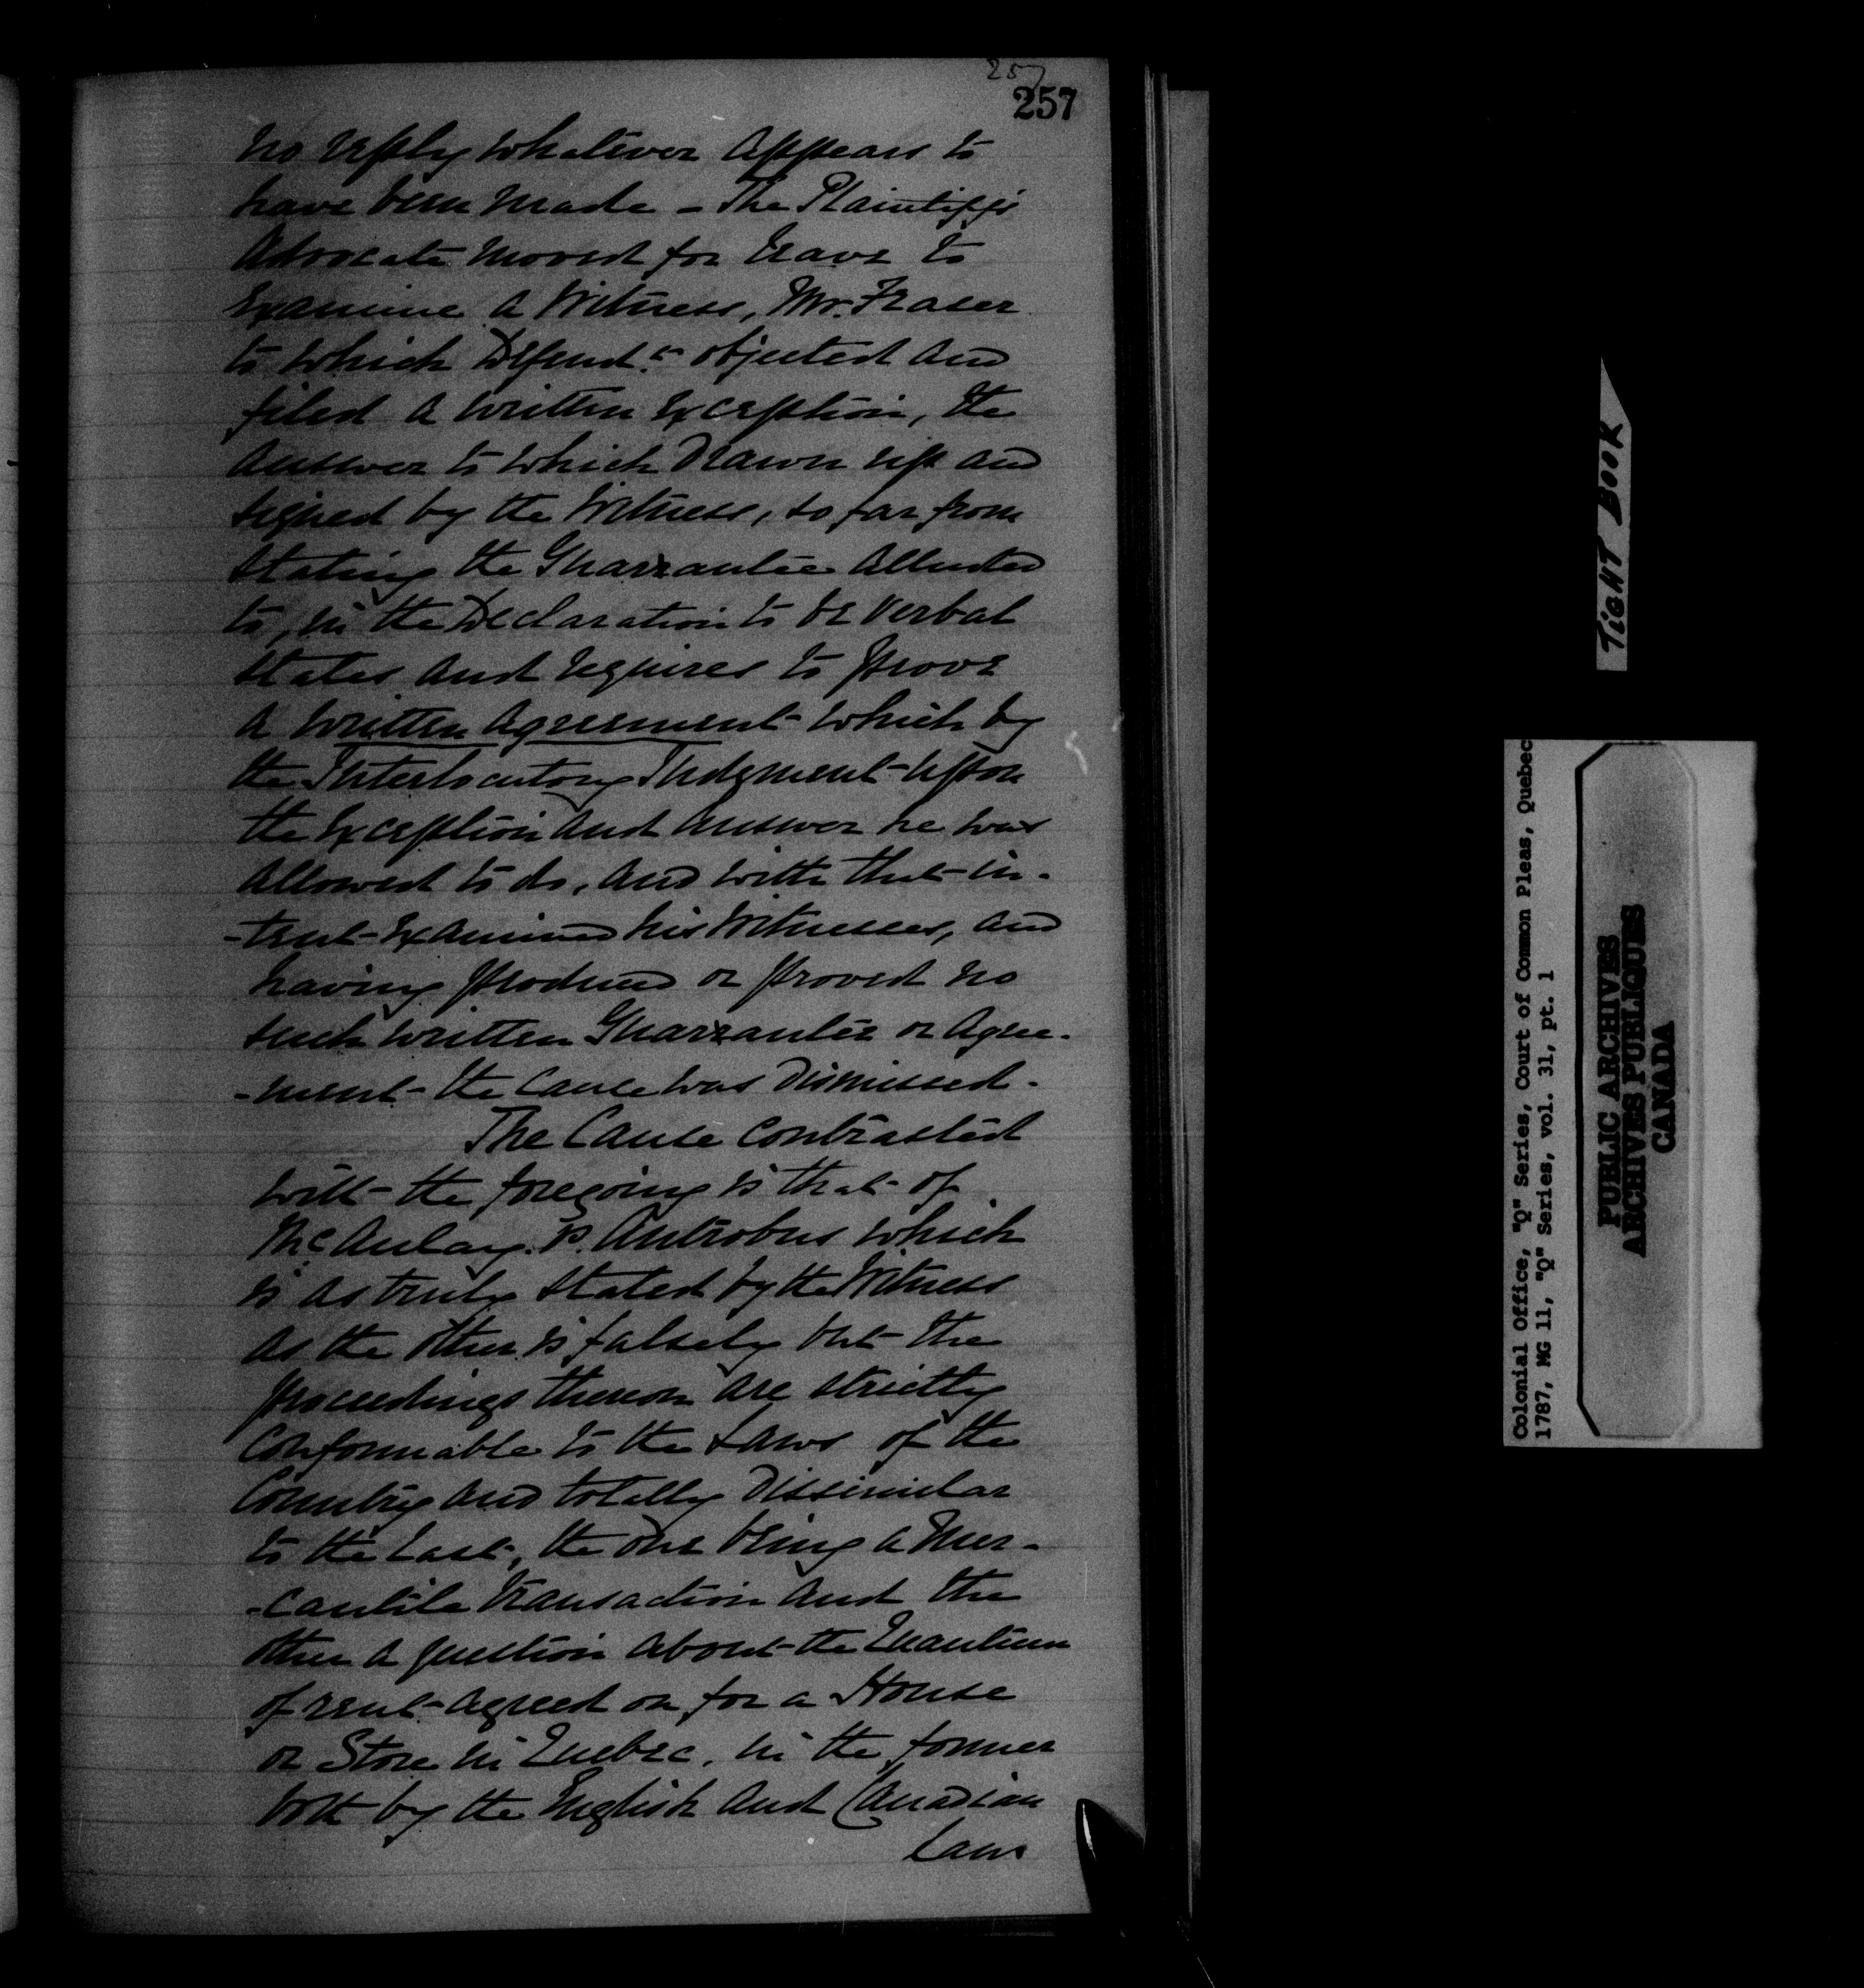 257
257
no reply whatever appears to
have been made – The Plaintiffs'
Advocate moved for leave to
Examine a Witness, Mr. Fraser
to which Defend.ts objected and
filed a written Exception, the
answer to which drawn up and
signed by the Witness, so far from
stating the Guarrantee alluded
to, in the Declaration to be verbal
states and requires to prove
a written agreement which by
the Interlocutory Judgment upon
the Exception and answer he was
allowed to do, and with that in-
-tent Examined his Witnesses, and
having produced or proved no
such written Guarrantee or Agree-
-ment the Cause was dismissed.
The Cause contrasted
with the foregoing is that of
McAulay vs. Antrobus which
is as truly stated by the Witness
as the other is falsely but the
proceedings thereon are strictly
conformable to the Laws of the
Country and totally dissimilar
to the last, the one being a Mer-
-cantile transaction and the
other a question about the Quantum
of rent agreed on for a House
or Store in Quebec, in the former
both by the English and Canadian
Laws
TIGHT BOOK
Colonial Office, "Q" Series, Court of Common Pleas, Quebec
1787, MG 11, "Q" Series, vol. 31, pt. 1
PUBLIC ARCHIVES
ARCHIVES PUBLIQUES
CANADA